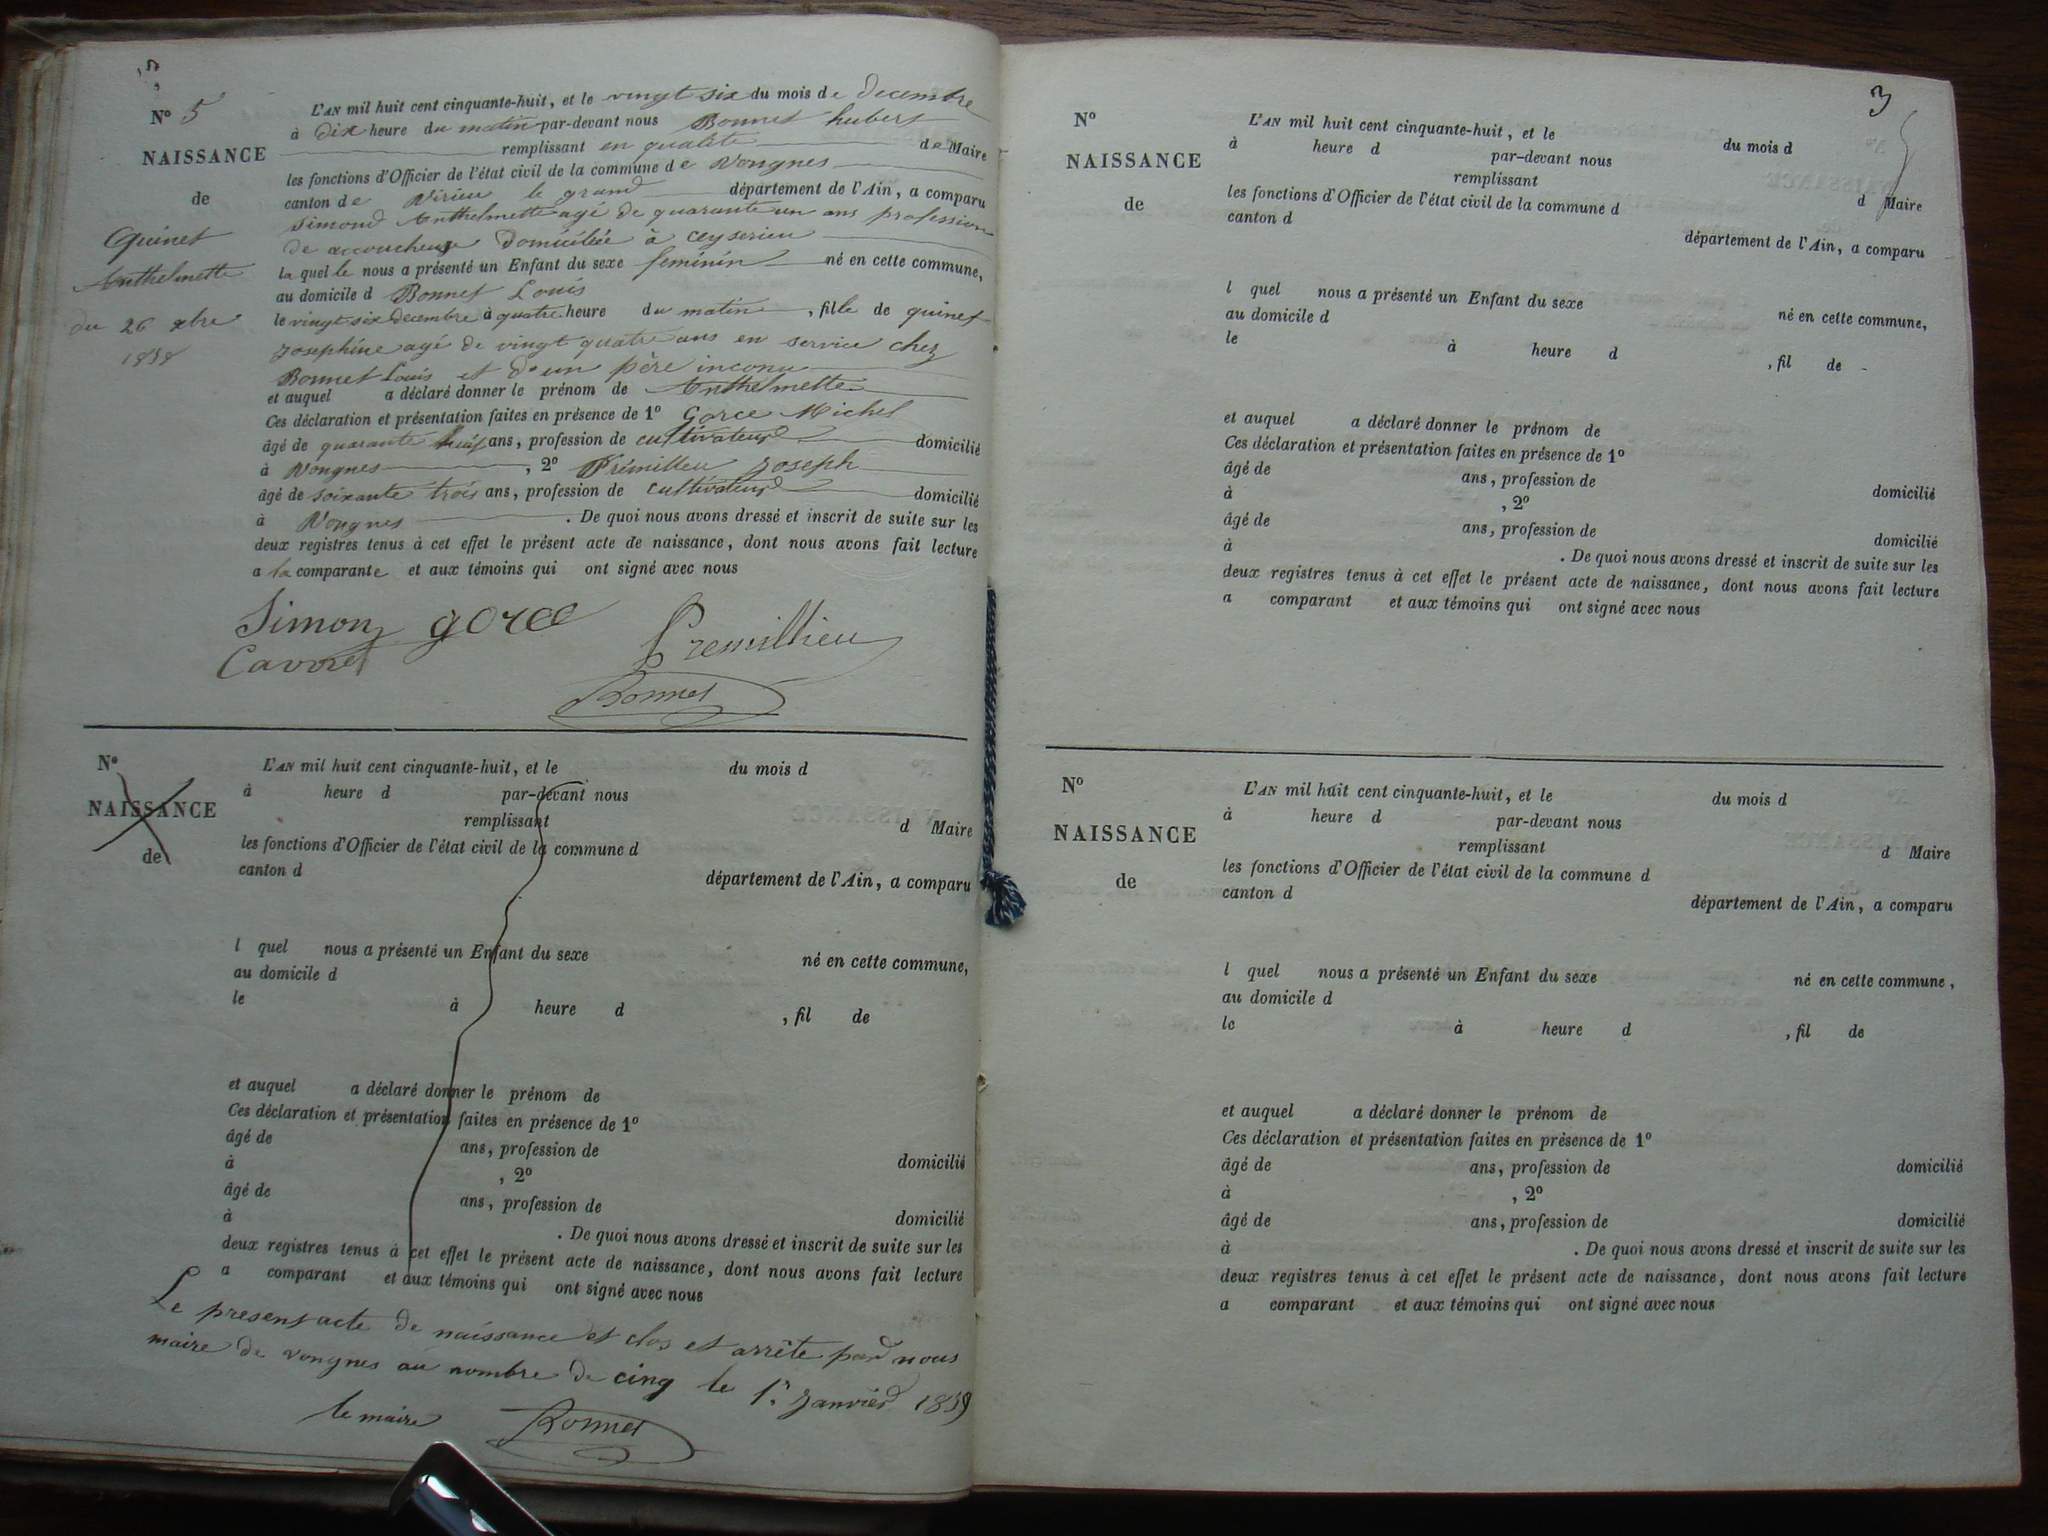 N° 5
NAISSANCE
de
Quinet
Anthelmette
du 26 xbre
1858
L'AN mil huit cent cinquante-huit, et le vingt six du mois de decembre
à dix heure du matin par-devant nous Bonnet hubert
remplissant en qualité de Maire
les fonctions d'Officier de l'état civil de la commune de Vongnes
canton de Virieu le grand département de l'Ain, a comparu
Simond Anthelmette agé de quarante un ans profession
de accoucheuse domiciliée à ceyserieu
la quelle nous a présenté un Enfant du sexe feminin né en cette commune,
au domicile d Bonnet Louis
le vingt six decembre à quatre heure du matin, fille de quinet
Josephine agé de vingt quatre ans en service chez
Bonnet Louis et d'un père inconu
et auquel a déclaré donner le prénom de Anthelmette
Ces déclaration et présentation faites en présence de 1° Gorce Michel
âgé de quarante huit ans, profession de cultivateur domicilié
à Vongnes, 2° Prémillieu Joseph
âgé de soixante trois ans, profession de cultivateur domicilié
à Vongnes. De quoi nous avons dressé et inscrit de suite sur les
deux registres tenus à cet effet le présent acte de naissance, dont nous avons fait lecture
a la comparante et aux témoins qui ont signé avec nous
Simon gorce
Premillieu
Cavoret
Bonnet
N°
NAISSANCE
de
L'AN mil huit cent cinquante-huit, et le du mois d
à heure d par-devant nous
remplissant d Maire
les fonctions d'Officier de l'état civil de la commune d
canton d département de l'Ain, a comparu
l quel nous a présenté un Enfant du sexe né en cette commune,
au domicile d
le à heure d , fil de
et auquel a déclaré donner le prénom de
Ces déclaration et présentation faites en présence de 1°
âgé de ans, profession de domicilié
à , 2°
âgé de ans, profession de domicilié
à . De quoi nous avons dressé et inscrit de suite sur les
deux registres tenus à cet effet le présent acte de naissance, dont nous avons fait lecture
a comparant et aux témoins qui ont signé avec nous
Le present acte de naissance est clos et arrête par nous
maire de vongnes au nombre de cinq le 1r Janvier 1859
le maire Bonnet
3
N°
NAISSANCE
de
L'AN mil huit cent cinquante-huit, et le du mois d
à heure d par-devant nous
remplissant d Maire
les fonctions d'Officier de l'état civil de la commune d
canton d département de l'Ain, a comparu
l quel nous a présenté un Enfant du sexe né en cette commune,
au domicile d
le à heure d , fil de
et auquel a déclaré donner le prénom de
Ces déclaration et présentation faites en présence de 1°
âgé de ans, profession de domicilié
à , 2°
âgé de ans, profession de domicilié
à . De quoi nous avons dressé et inscrit de suite sur les
deux registres tenus à cet effet le présent acte de naissance, dont nous avons fait lecture
a comparant et aux témoins qui ont signé avec nous
N°
NAISSANCE
de
L'AN mil huit cent cinquante-huit, et le du mois d
à heure d par-devant nous
remplissant d Maire
les fonctions d'Officier de l'état civil de la commune d
canton d département de l'Ain, a comparu
l quel nous a présenté un Enfant du sexe né en cette commune,
au domicile d
le à heure d , fil de
et auquel a déclaré donner le prénom de
Ces déclaration et présentation faites en présence de 1°
âgé de ans, profession de domicilié
à , 2°
âgé de ans, profession de domicilié
à . De quoi nous avons dressé et inscrit de suite sur les
deux registres tenus à cet effet le présent acte de naissance, dont nous avons fait lecture
a comparant et aux témoins qui ont signé avec nous